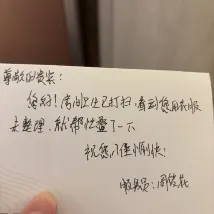 尊敬的贵宾:
您好!房间卫生已打扫,看到您用衣服
未整理,就帮忙叠了一下
祝您入住愉快!
服务员:周